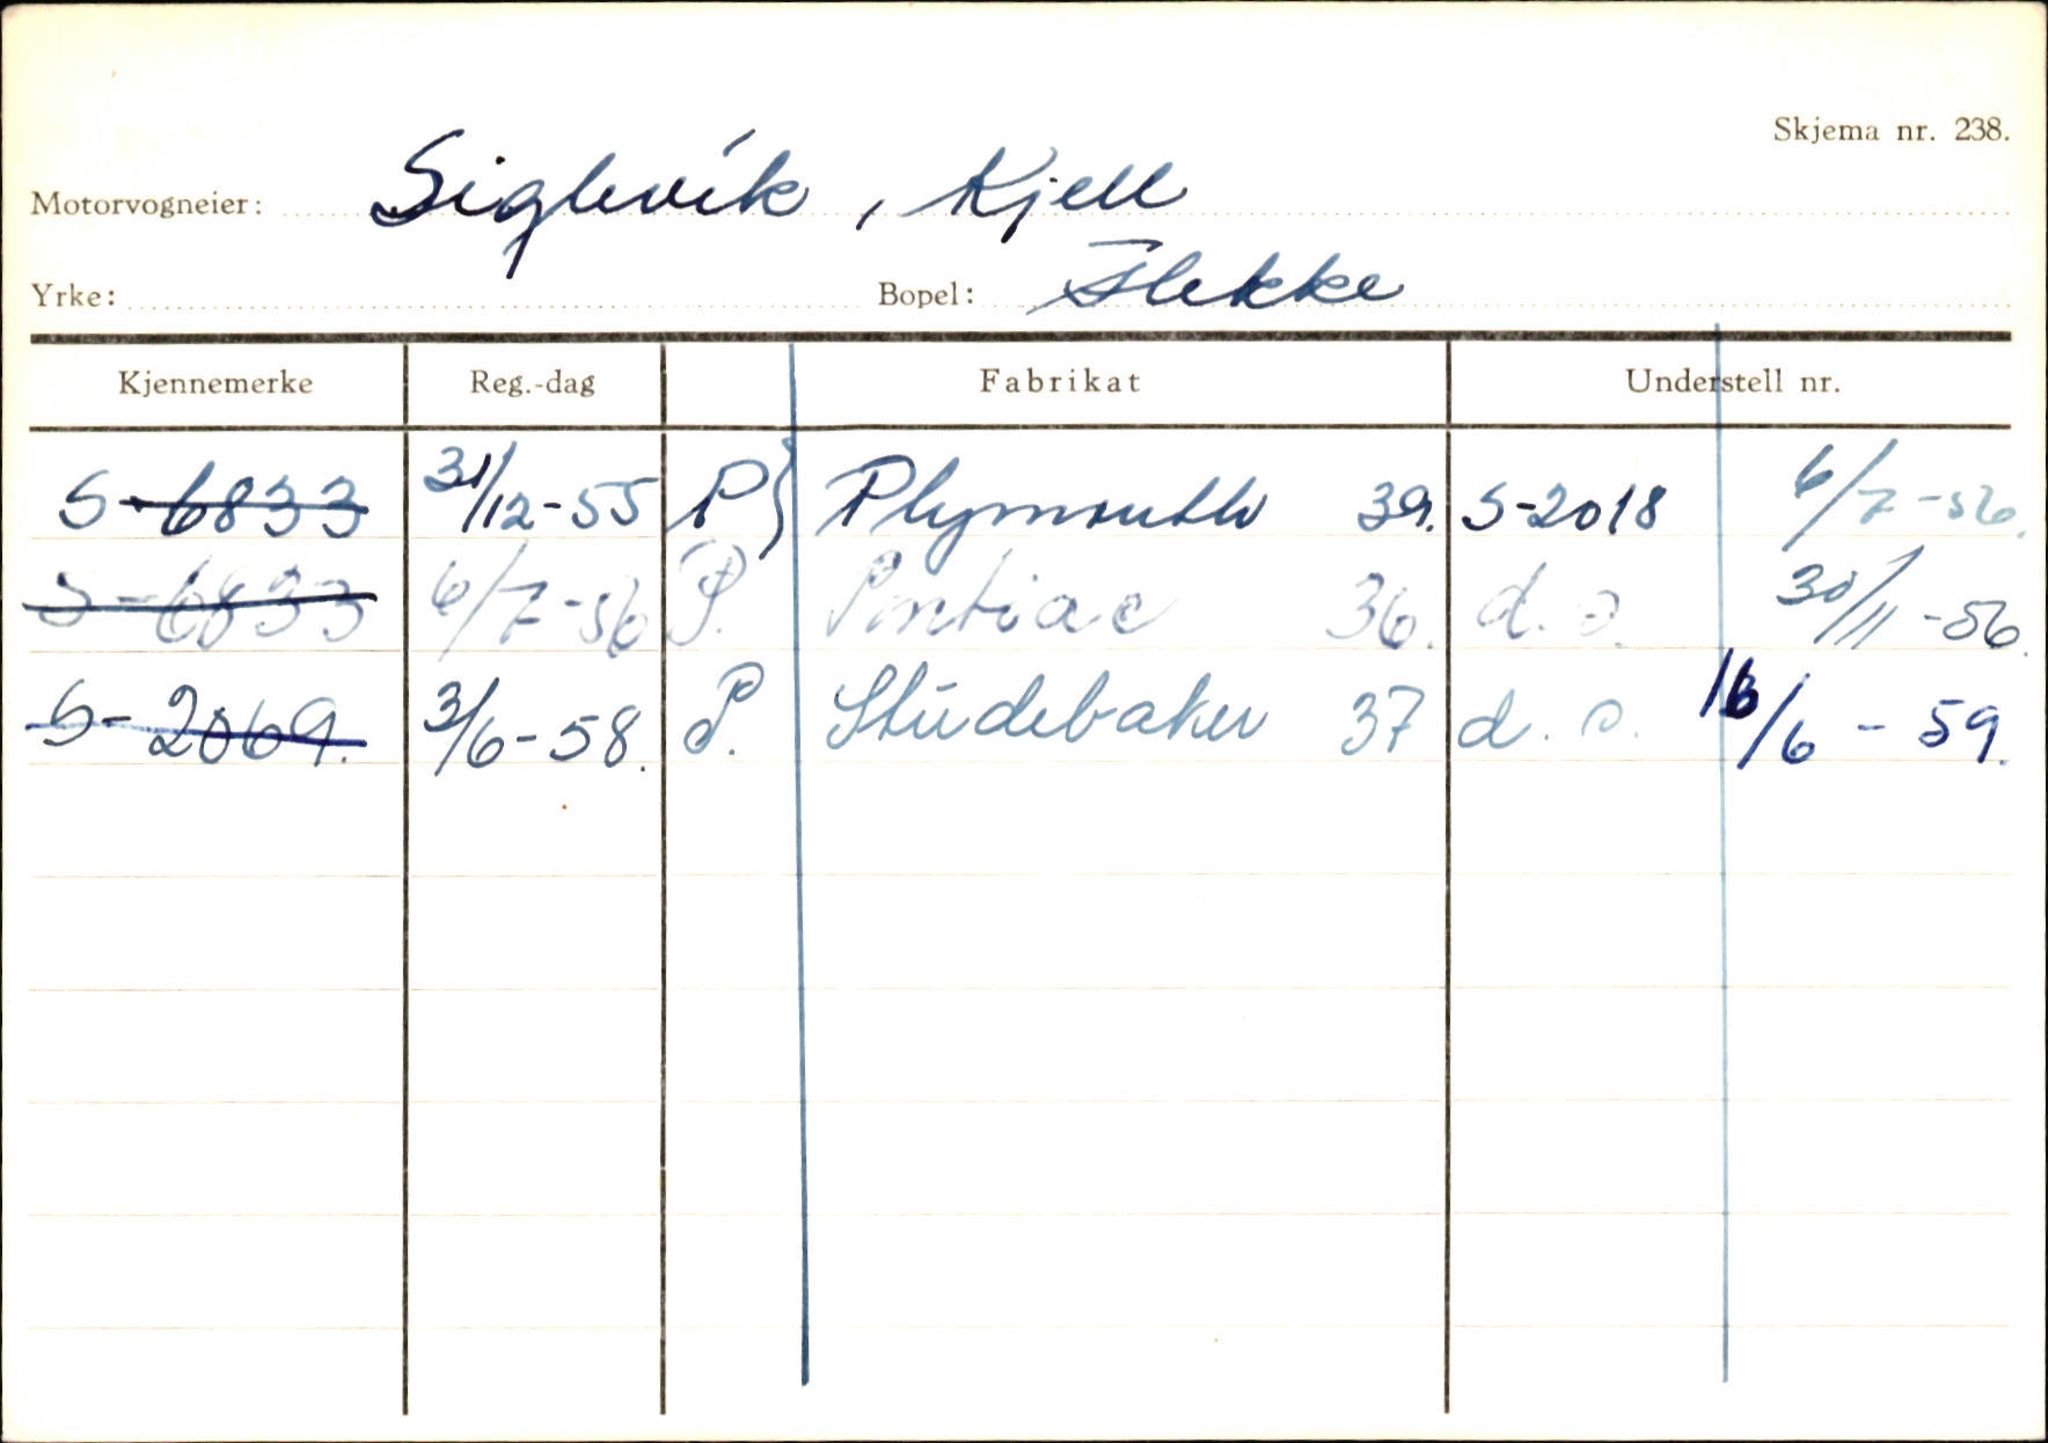 Skjema nr. 238.
Motorvogneier: Siglevik, Kjell
Yrke: Bopel: Flekke
Kjennemerke Reg.-dag Fabrikat Understell nr.
S-6833 31/12-55 P Plymouth 39. S-2018 6/7-56.
S-6833 6/7-56 P. Pontiac 36. d.o. 30/11-56.
S-2069. 3/6-58. P. Studebaker 37 d.o. /6-59.